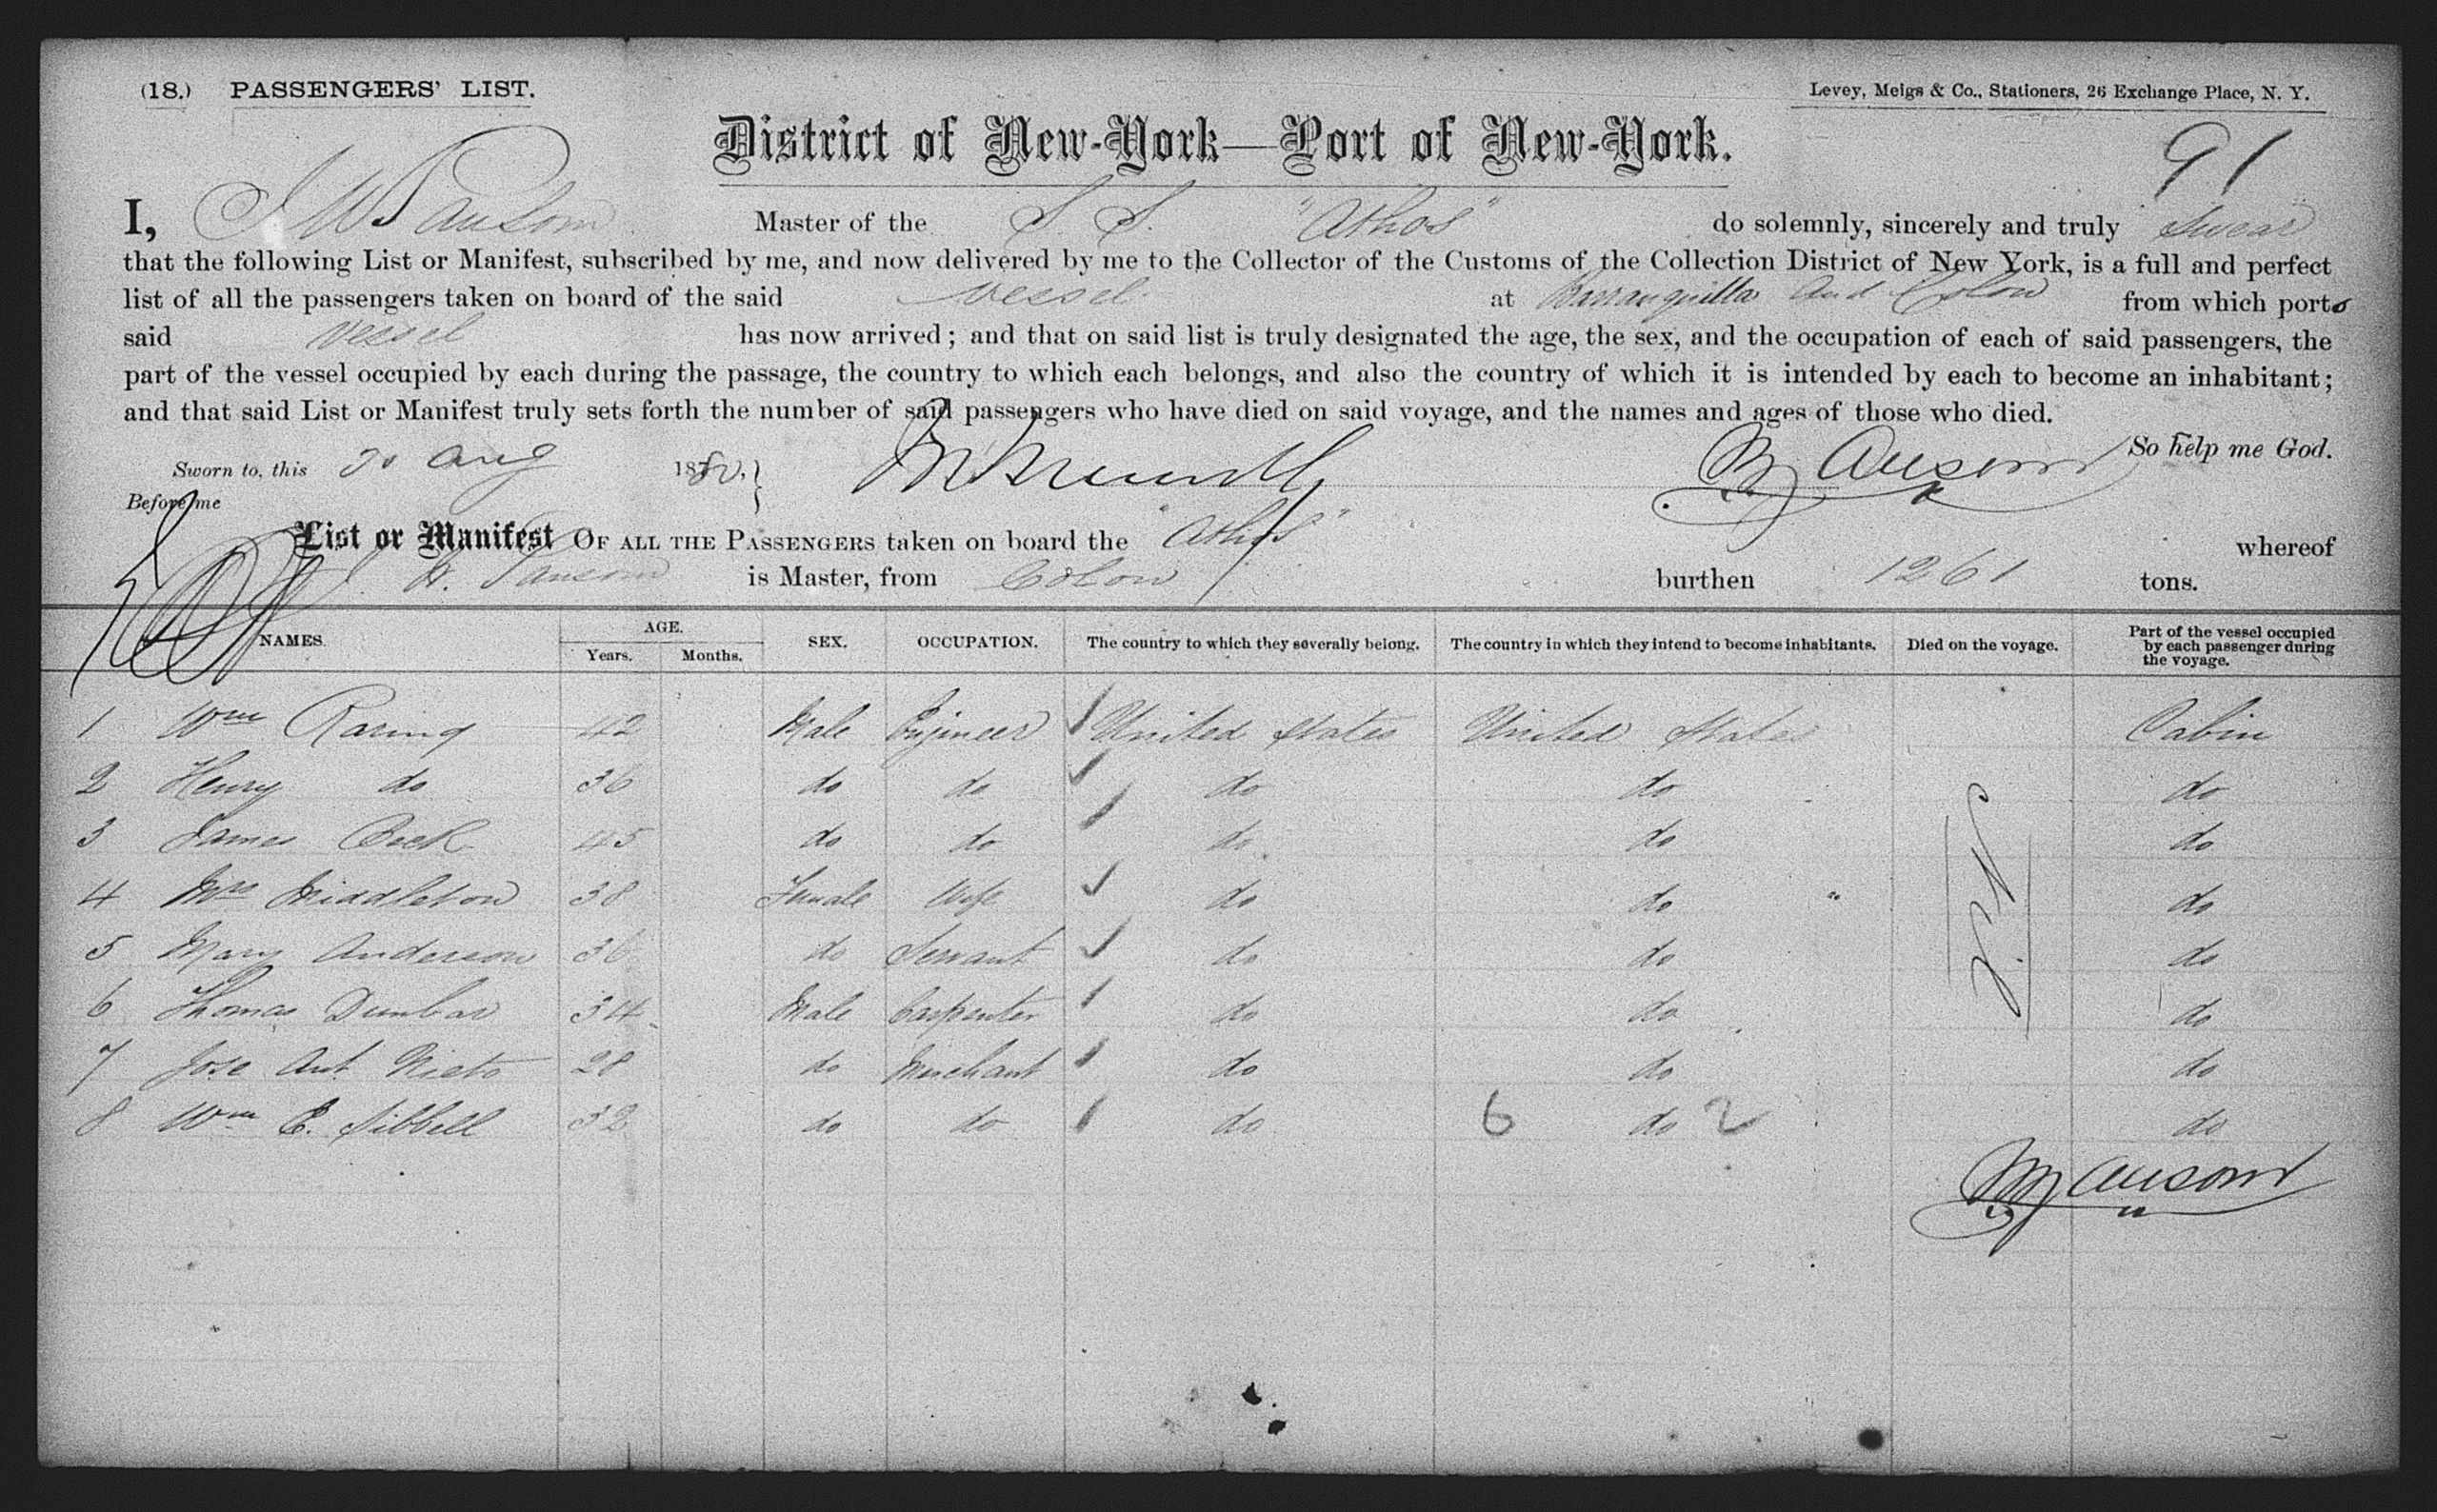 (18.) PASSENGERS' LIST.
Levey, Meigs & Co., Stationers, 26 Exchange Place, N. Y.
District of New-York—Port of New-York.
91
I, Sansom Master of the S. S. "Athos" do solemnly, sincerely and truly Swear
that the following List or Manifest, subscribed by me, and now delivered by me to the Collector of the Customs of the Collection District of New York, is a full and perfect
list of all the passengers taken on board of the said Vessel at Barranquilla and Colon from which ports
said Vessel has now arrived; and that on said list is truly designated the age, the sex, and the occupation of each of said passengers, the
part of the vessel occupied by each during the passage, the country to which each belongs, and also the country of which it is intended by each to become an inhabitant;
and that said List or Manifest truly sets forth the number of said passengers who have died on said voyage, and the names and ages of those who died.
So help me God.
Sworn to, this Aug 18
Before me
List or Manifest OF ALL THE PASSENGERS taken on board the "Athos" whereof
Sansom is Master, from Colon burthen 1261 tons.
NAMES. AGE. Years. Months. SEX. OCCUPATION. The country to which they severally belong. The country in which they intend to become inhabitants. Died on the voyage. Part of the vessel occupied by each passenger during the voyage.
1 Wm Raring 42 Male Engineer United States United States Cabin
2 Henry do 36 do do do do do
3 James 45 do do do do do
4 Mrs Middleton 38 Female Wife do do do
5 Mary Anderson 36 do Servant do do do
6 Thomas Dunbar 34 Male Carpenter do do do
7 Jose Ant Nieto 28 do Merchant do do do
8 Wm E. Sibbell 32 do do do 6 do 2 do